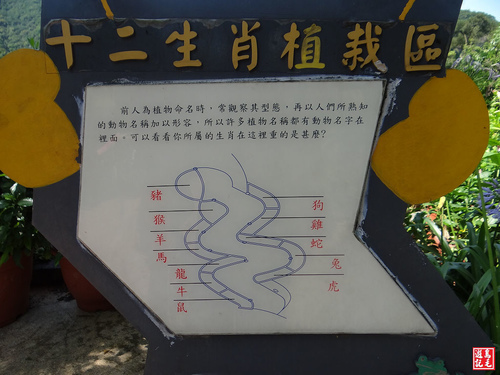 十二生肖植栽區
前人為植物命名時，常觀察其型態，再以人們所熟知
的動物名稱加以形容，所以許多植物名稱都有動物名字在
裡面。可以看看你所屬的生肖在這裡重的是甚麼?
豬
猴
羊
馬
龍
牛
鼠
狗
雞
蛇
兔
虎